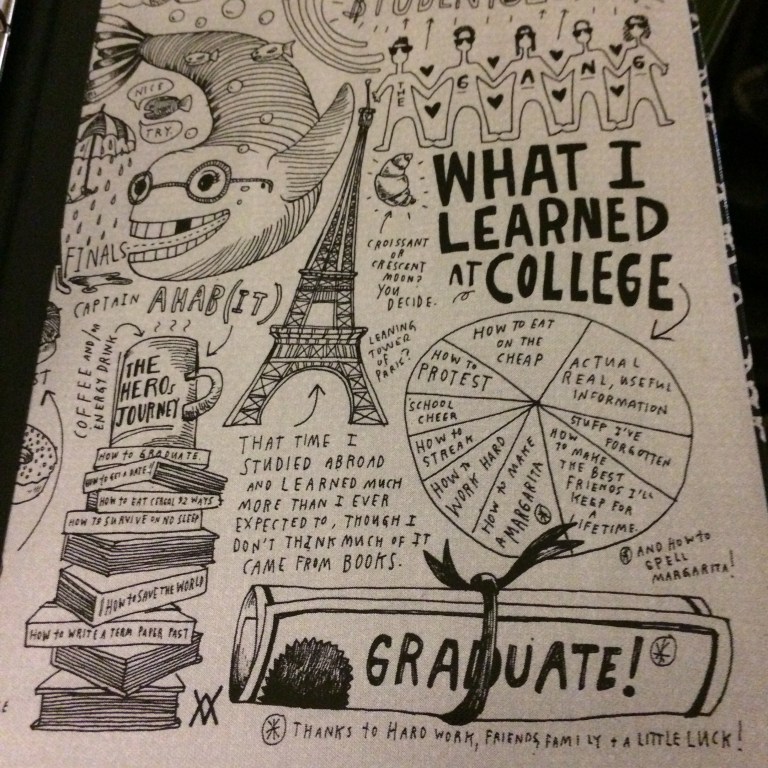 NICE
TRY.
THE
G A N G
WHAT I
LEARNED
AT COLLEGE
FINALS
CAPTAIN AHAB(IT)
CROISSANT
OR
CRESCENT
MOON?
YOU
DECIDE.
LEANING
TOWER
OF
PARIS?
COFFEE AND/OR
ENERGY DRINK
THE
HEROS
JOURNEY
HOW TO EAT
ON THE
CHEAP
ACTUAL
REAL, USEFUL
INFORMATION
STUFF I'VE
FORGOTTEN
HOW
TO MAKE
THE BEST
FRIENDS I'LL
KEEP FOR
A
LIFETIME.
HOW TO MAKE
A MARGARITA
HOW TO
WORK HARD
HOW TO
STREAK
SCHOOL
CHEER
HOW TO
PROTEST
AND HOW TO
SPELL
MARGARITA!
THAT TIME I
STUDIED ABROAD
AND LEARNED MUCH
MORE THAN I EVER
EXPECTED TO, THOUGH I
DON'T THINK MUCH OF IT
CAME FROM BOOKS.
HOW TO GRADUATE.
HOW TO GET A DATE!
HOW TO EAT CEREAL 92 WAYS
HOW TO SURVIVE ON NO SLEEP
HOW TO SAVE THE WORLD
HOW TO WRITE A TERM PAPER FAST
GRADUATE!*
* THANKS TO HARD WORK, FRIENDS, FAMILY + A LITTLE LUCK!